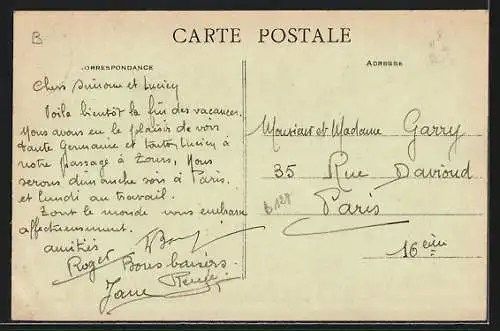 B
CARTE POSTALE
CORRESPONDANCE
ADRESSE
Chers Simone et Lucien
Voila bientôt la fin des vacances.
Nous avons eu le plaisir de voir
tante Germaine et tonton Lucien à
notre passage à Tours, Nous
serons dimanche soir à Paris
et lundi au travail.
Tout le monde vous embrasse
affectueusement.
amitiés
Roger Bons baisers
Jane Renée
Monsieur et Madame Garry
35 Rue Davioud
B128
Paris
16eme